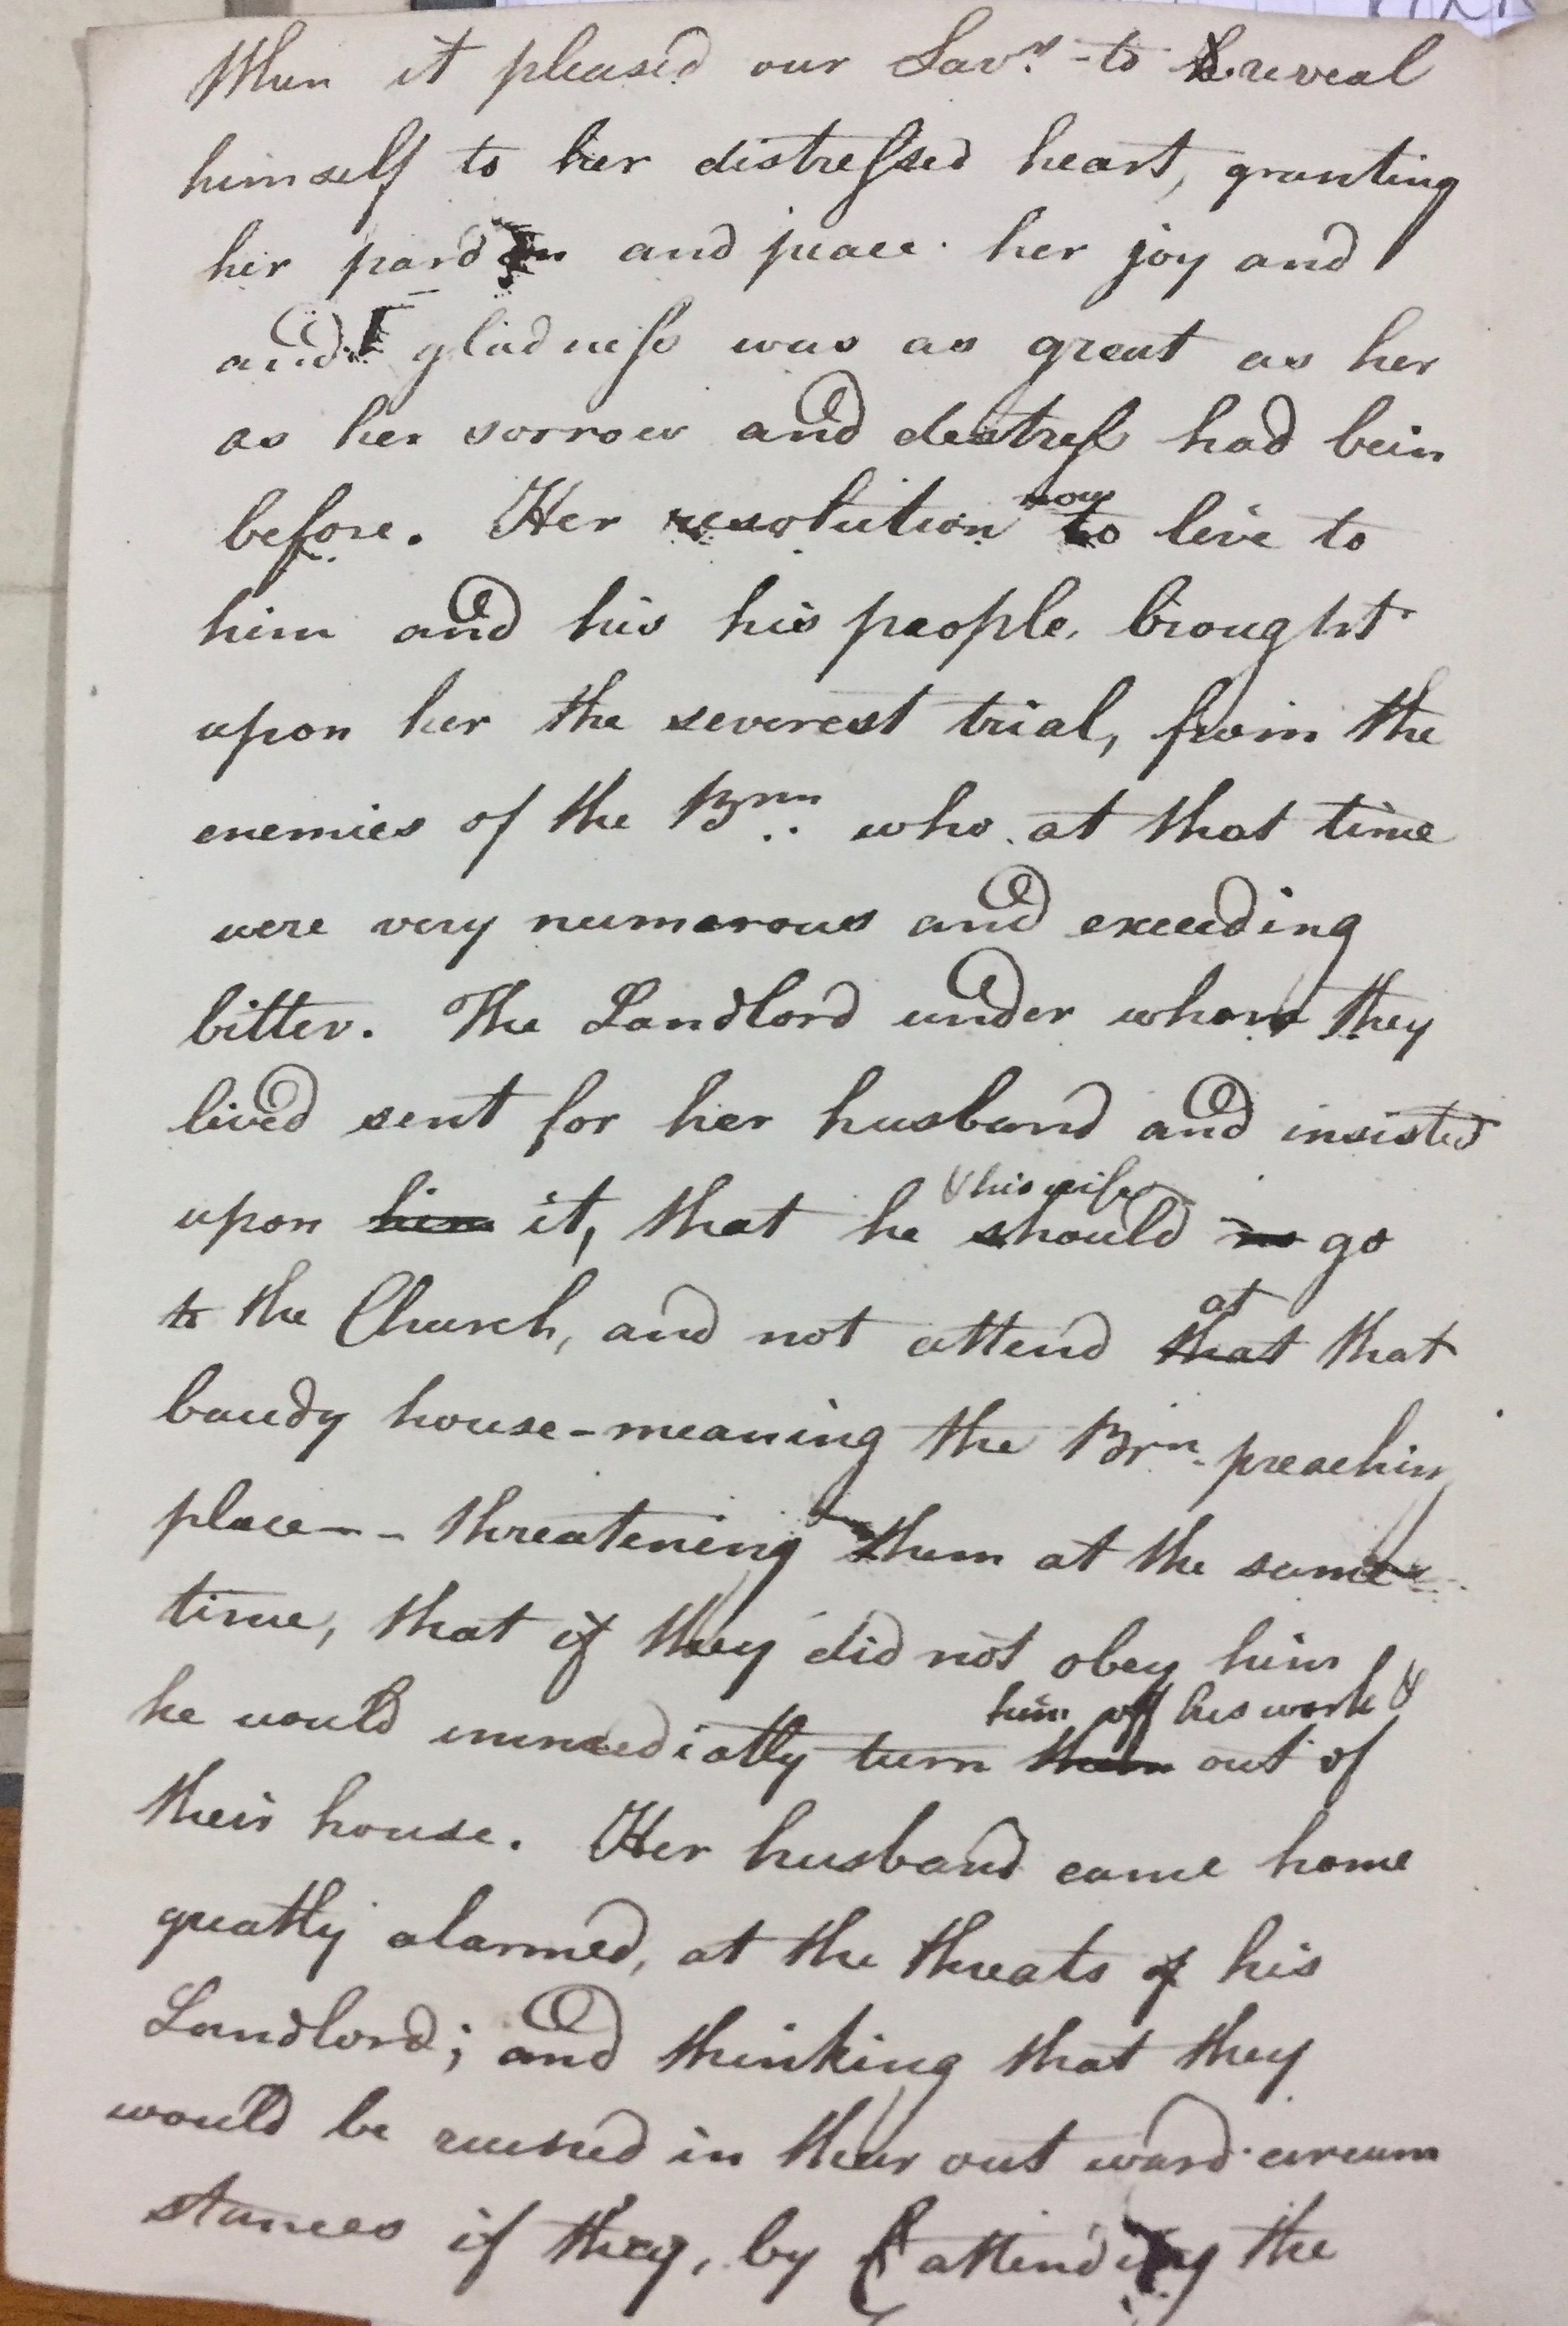 When it pleased our Savr. to reveal
himself to her distreſsed heart, granting
her pardon and peace. her joy and
and gladneſs was as great as her
as her sorrow and destreſs had bein
before. Her resolution now to live to
him and his his people, brought
upon her the severest trial, from the
enemies of the Brn.. who at that time
were very numerous and exceeding
bitter. The Landlord under whom they
lived sent for her husband and insisted
& his wife
upon him it, that he should go
at
to the Church, and not attend that that
baudy house - meaning the Brn. preaching
place -- threatening them at the same
time, that if they did not obey him
him off his work &
he would immediatly turn them out of
their house. Her husband came home
greatly alarmed, at the threats of his
Landlord; and thinking that they
would be ruined in their out ward circum
stances if they, by attending the